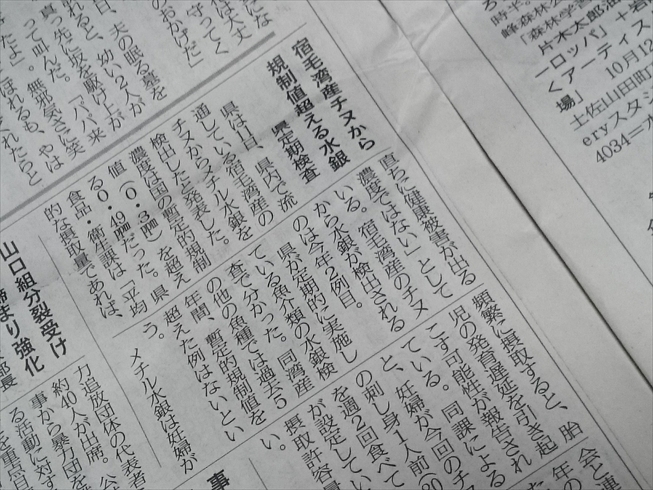 宿毛湾産チヌから
規制値超える水銀
県定期検査
県は1日、県内で流
通している宿毛湾産の
チヌからメチル水銀を
検出したと発表した。
濃度は国の暫定的規制
値(0・3ppm)を超え
る0・49ppmだった。県
食品・衛生課は「平均
的な摂取量であれば、
直ちに健康被害が出る
濃度ではない」として
いる。宿毛湾産のチヌ
から水銀が検出される
のは今年2例目。
県が定期的に実施し
ている魚介類の水銀検
査で分かった。同湾産
の他の魚種では過去5
年間、暫定的規制値を
超えた例はないとい
う。
メチル水銀は妊婦が
頻繁に摂取すると、胎
児の発育遅延を引き起
こす可能性が報告され
ている。同課による
と、妊婦が今回のチ
の刺し身1人前
を週2回食べて
が設定してい
摂取許容量
い。
山口組分裂受け
締まり強化
力追放団体の代表者
約40人が出席。公
事から暴力団を
る活動に対す
夫の眠る墓を
時半。
峰森林公
「森林学習
片木太郎油
ーロッパ」+岩
くアーティス
場」
10月12
土佐山田町
eryスタジ
4034=水